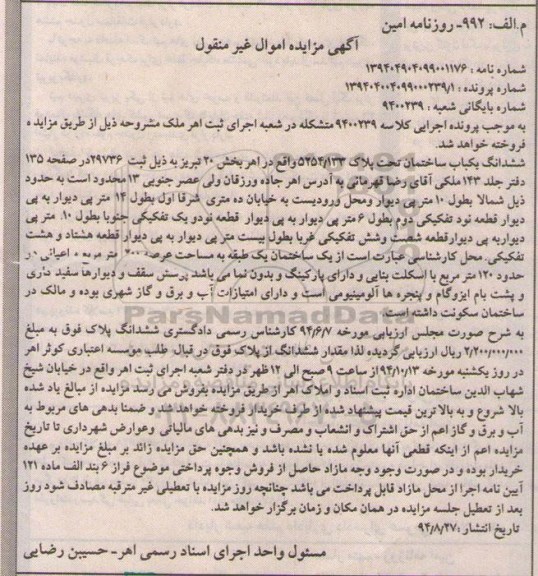 م.الف: ۹۹۲- روزنامه امین
آگهی مزایده اموال غیر منقول
شماره نامه : ۱۳۹۴۰۴۹۰۴۰۹۹۰۰۱۱۷۶
شماره پرونده : ۱۳۹۴۰۴۰۰۴۰۹۹۰۰۰۲۳۹/۱
شماره بایگانی شعبه : ۹۴۰۰۲۳۹
به موجب پرونده اجرایی کلاسه ۹۴۰۰۲۳۹ متشکله در شعبه اجرای ثبت اهر ملک مشروحه ذیل از طریق مزایده
فروخته خواهد شد.
ششدانگ یکباب ساختمان تحت پلاک ۵۲۵۴/۱۳۳ واقع در اهر بخش ۲۰ تبریز به ذیل ثبت ۲۹۷۳۶ در صفحه ۱۳۵
دفتر جلد ۱۴۳ ملکی آقای رضا قهرمانی به آدرس اهر جاده ورزقان ولی عصر جنوبی ۱۳ محدود است به حدود
ذیل شمالا بطول ۱۰ متر پی دیوار ومحل ورودیست به خیابان ده متری شرقا اول بطول ۱۴ متر پی دیوار به پی
دیوار قطعه نود تفکیکی دوم بطول ۶ متر پی دیوار به پی دیوار قطعه نودو یک تفکیکی جنوبا بطول ۱۰ متر پی
دیواربه پی دیوارقطعه شصت وشش تفکیکی غربا بطول بیست متر پی دیوار به پی دیوار قطعه هشتاد و هشت
تفکیکی. محل کارشناسی عبارت است از یک ساختمان یک طبقه به مساحت عرصه ۲۰۰ متر مربع و اعیانی در
حدود ۱۲۰ متر مربع با اسکلت بنایی و دارای پارکینگ و بدون نما می باشد پوشش سقف و دیوارها سفید کاری
و پشت بام ایزوگام و پنجره ها آلومینیومی است و دارای امتیازات آب و برق و گاز شهری بوده و مالک در
ساختمان سکونت داشته است.
ParsNamadData
به شرح صورت مجلس ارزیابی مورخه ۹۴/۶/۷ کارشناس رسمی دادگستری ششدانگ پلاک فوق به مبلغ
۲/۲۰۰/۰۰۰/۰۰۰ ریال ارزیابی گردیده لذا مقدار ششدانگ از پلاک فوق در قبال طلب موسسه اعتباری کوثر اهر
در روز یکشنبه مورخه ۹۴/۱۰/۱۳ از ساعت ۹ صبح الی ۱۲ ظهر در دفتر شعبه اجرای ثبت اهر واقع در خیابان شیخ
شهاب الدین ساختمان اداره ثبت اسناد و املاک اهر از طریق مزایده بفروش می رسد مزایده از مبالغ یاد شده
بالا شروع و به بالا ترین قیمت پیشنهاد شده از طرف خریدار فروخته خواهد شد و ضمنا بدهی های مربوط به
آب و برق و گاز اعم از حق اشتراک و انشعاب و مصرف و نیز بدهی های مالیاتی وعوارض شهرداری تا تاریخ
مزایده اعم از اینکه قطعی آنها معلوم شده یا نشده باشد و همچنین حق مزایده زائد بر مبلغ مزایده بر عهده
خریدار بوده و در صورت وجود وجه مازاد حاصل از فروش وجوه پرداختی موضوع فراز ۶ بند الف ماده ۱۲۱
آیین نامه اجرا از محل مازاد قابل پرداخت می باشد چنانچه روز مزایده با تعطیلی غیر مترقبه مصادف شود روز
بعد از تعطیل جلسه مزایده در همان مکان و زمان برگزار خواهد شد.
تاریخ انتشار: ۹۴/۸/۲۷
مسئول واحد اجرای اسناد رسمی اهر- حسین رضایی